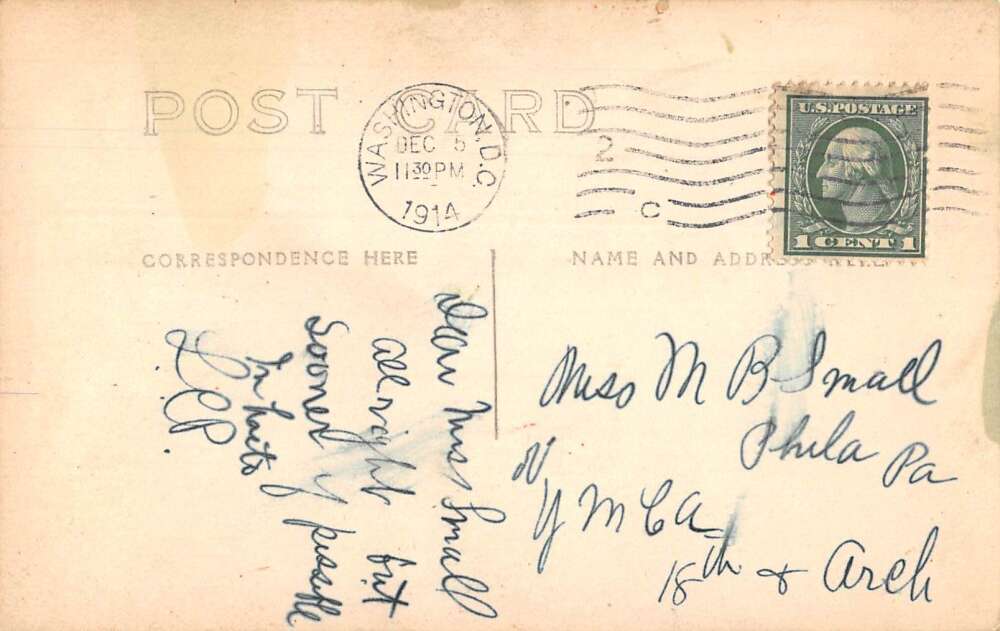 POST CARD
WASHINGTON, D.C.
DEC 5
11 30 PM
1914
2
C
U.S. POSTAGE
1 CENT 1
CORRESPONDENCE HERE
NAME AND ADDRESS
Dear Miss Small
allright but
Sooner if possible
In haste
Miss M B Small
Phila Pa
Y M C A
18th & Arch